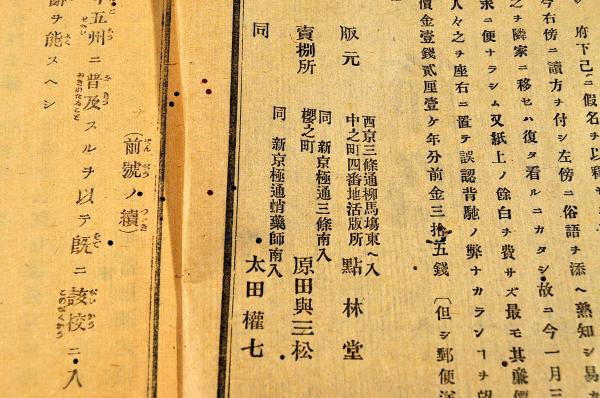 府下已ニ假名チ以釋
今右傍ニ讀方チ付シ左傍ニ俗語チ添ヘ熟知シ易
之チ隣家ニ移セハ復タ看ルニカタシ故ニ今一月三
求ニ便ナラシム又紙上ノ餘白チ費サズ最モ其廉價
人々之チ座右ニ置テ誤認背馳ノ弊ナカランヿチ望
價金壹錢貳厘壹ヶ年分前金三拾五錢 〔但シ郵便
版元 西京三條通柳馬塲東ヘ入
中之町四番地活版所 點林堂
賣捌所 同 新京極通三條南入
櫻之町 原田與三松
同 同 新京極通蛸藥師南入 太田權七
(前號ノ續)
ぜんがうつゞき
五州ニ普及スルチ以テ既ニ該校ニ入
能スヘシ